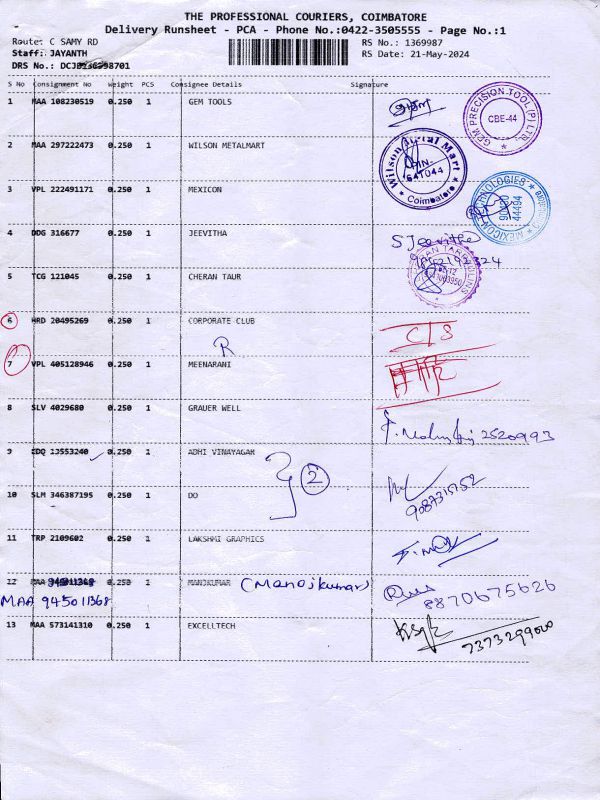 THE PROFESSIONAL COURIERS, COIMBATORE
Delivery Runsheet - PCA - Phone No.:0422-3505555 - Page No.:1
Route: C SAMY RD RS No.: 1369987
Staff: JAYANTH RS Date: 21-May-2024
DRS No.:
S No Consignment No Weight PCS Consignee Details Signature
1 MAA 108230519 0.250 1 GEM TOOLS
GEM PRECISION TOOL (P) LTD CBE-44
2 MAA 297222473 0.250 1 WILSON METALMART
Wilson Metal Mart PIN- 641044 Coimbatore
3 VPL 222491171 0.250 1 MEXICON
MEXICON TECHNOLOGIES 44494
4 DDG 316677 0.250 1 JEEVITHA S Jeevitha
5 TCG 121045 0.250 1 CHERAN TAUR
6 HRD 20495269 0.250 1 CORPORATE CLUB C/S
R
7 VPL 405128946 0.250 1 MEENARANI
8 SLV 4029680 0.250 1 GRAUER WELL
2520993
9 EDQ 13553240 0.250 1 ADHI VINAYAGAR
2
10 SLM 346387195 0.250 1 DO
9087315152
11 TRP 2109602 0.250 1 LAKSHMI GRAPHICS
12 MAA 945011368 0.250 1 MANOJKUMAR (Manojkumar)
MAA 945011368 8870675626
13 MAA 573141310 0.250 1 EXCELLTECH
7373299000